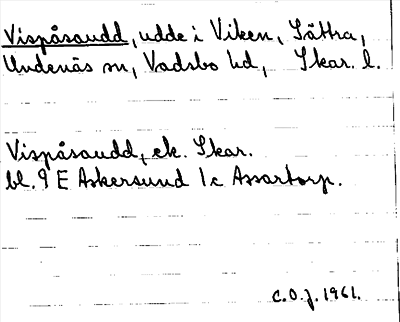 Vispåsaudd, udde i Viken, Sättra,
Undenäs sn, Vadsbo hd, Skar. l.
Vispåsaudd, ek. Skar.
bl. 9 E Askersund 1c Assartorp.
C.O.J. 1961.